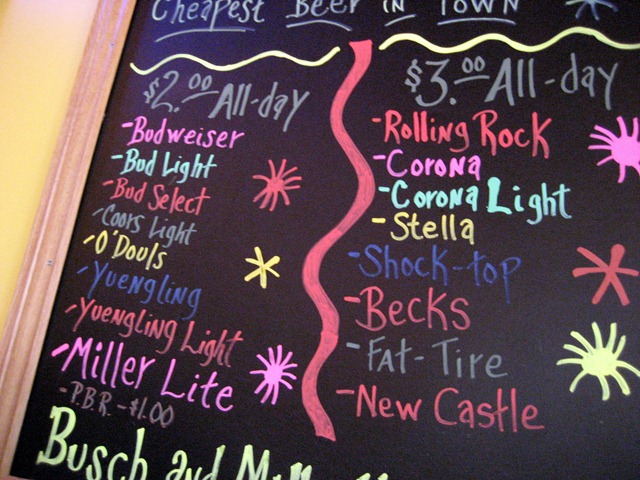 Cheapest Beer in Town
$2.00 All-day
-Budweiser
-Bud Light
-Bud Select
-Coors Light
-O'Douls
-Yuengling
-Yuengling Light
-Miller Lite
-P.B.R. -$1.00
Busch and
$3.00 All-day
-Rolling Rock
-Corona
-Corona Light
-Stella
-Shock-top
-Becks
-Fat-Tire
-New Castle